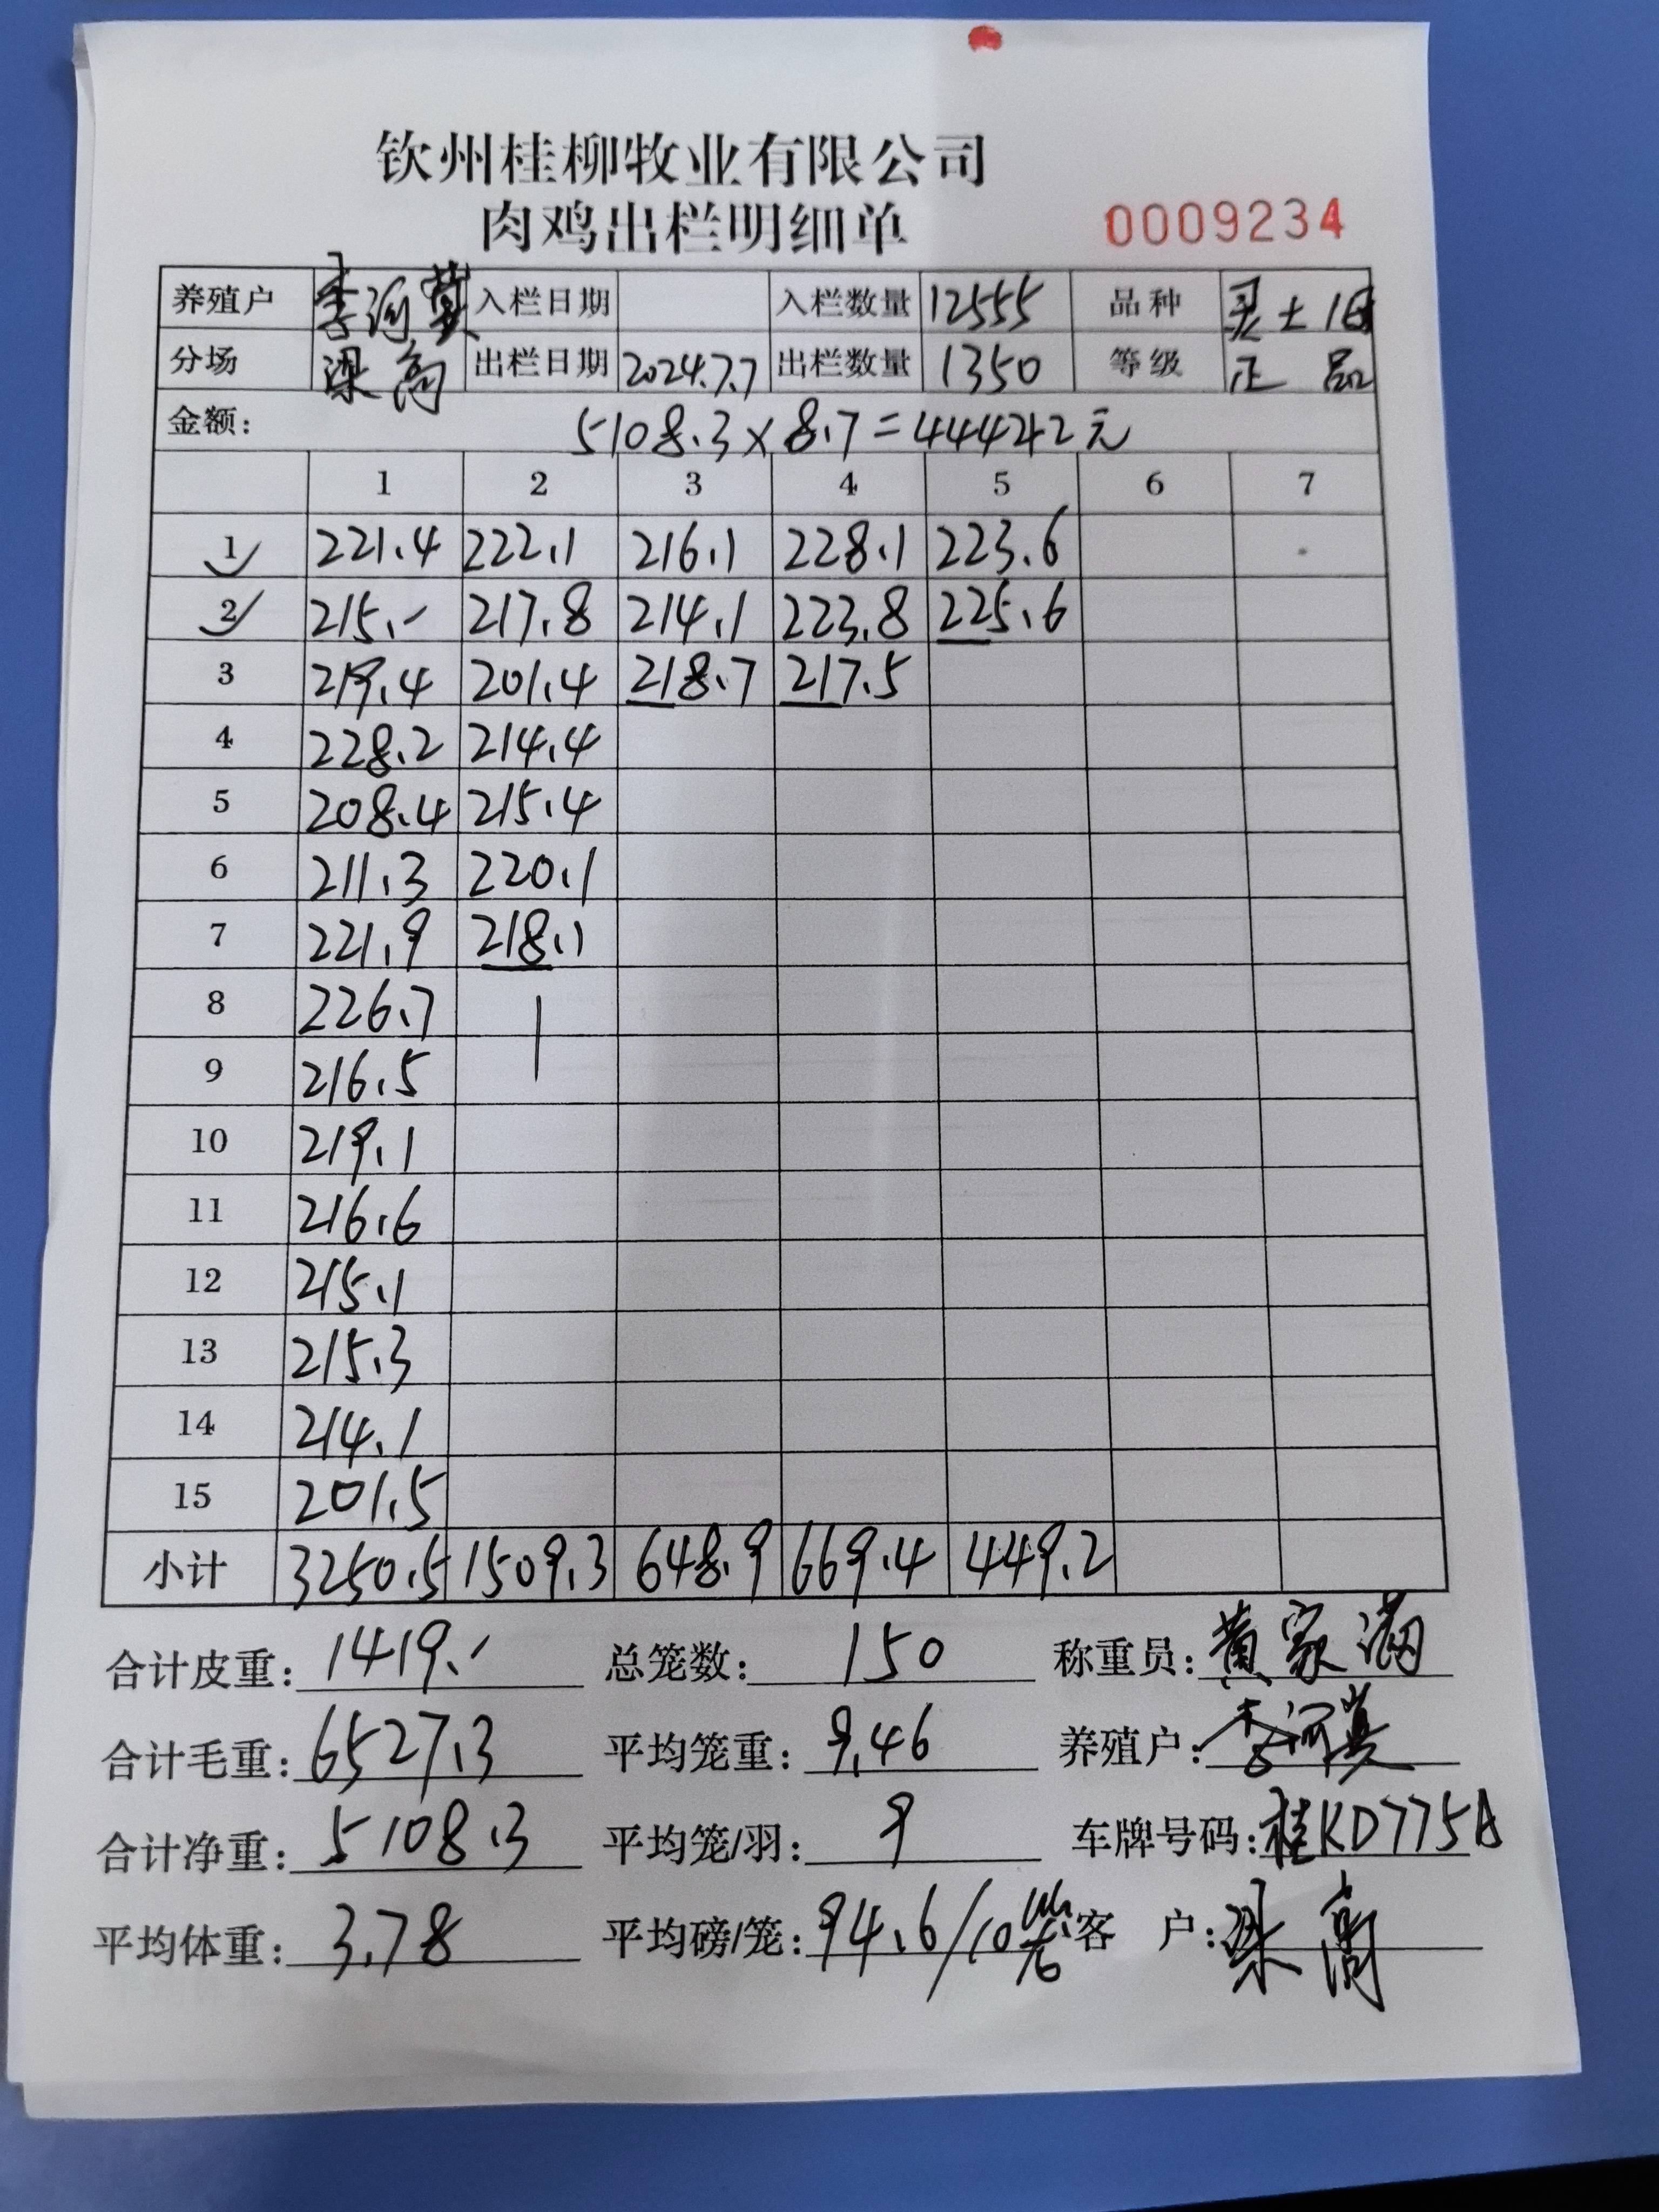 钦州桂柳牧业有限公司
肉鸡出栏明细单 0009234
养殖户 李河英 入栏日期 入栏数量 12555 品种 灵土1
分场 梁高 出栏日期 2024.7.7 出栏数量 1350 等级 正品
金额: 5108.3×8.7=44442元
1 2 3 4 5 6 7
1 221.4 222.1 216.1 228.1 223.6
2 215.- 217.8 214.1 223.8 225.6
3 219.4 201.4 218.7 217.5
4 228.2 214.4
5 208.4 215.4
6 211.3 220.1
7 221.9 218.1
8 226.7
9 216.5
10 219.1
11 216.6
12 215.1
13 215.3
14 214.1
15 201.5
小计 3250.5 1509.3 648.9 669.4 449.2
合计皮重: 1419.- 总笼数: 150 称重员: 黄家满
合计毛重: 6527.3 平均笼重: 9.46 养殖户: 李河英
合计净重: 5108.3 平均笼/羽: 9 车牌号码: 桂KD775A
平均体重: 3.78 平均磅/笼: 94.6/10 客 户: 梁高